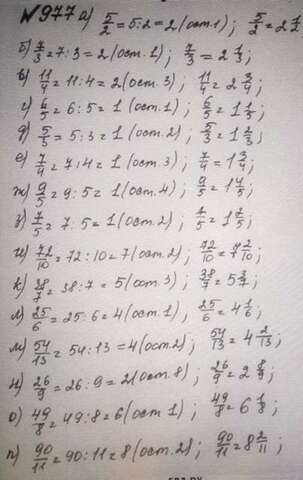 №977 а) 5/2 = 5:2 = 2 (ост.1) ; 5/2 = 2 1/2
б) 7/3 = 7:3 = 2 (ост. 1) ; 7/3 = 2 1/3 ;
в) 11/4 = 11:4 = 2 (ост. 3) ; 11/4 = 2 3/4 ;
г) 6/5 = 6:5 = 1 (ост. 1) ; 6/5 = 1 1/5 ;
д) 5/3 = 5:3 = 1 (ост. 2) ; 5/3 = 1 2/3 ;
е) 7/4 = 7:4 = 1 (ост. 3) ; 7/4 = 1 3/4 ;
ж) 9/5 = 9:5 = 1 (ост. 4) ; 9/5 = 1 4/5 ;
з) 7/5 = 7:5 = 1 (ост. 2) ; 7/5 = 1 2/5 ;
и) 72/10 = 72:10 = 7 (ост. 2) ; 72/10 = 7 2/10 ;
к) 38/7 = 38:7 = 5 (ост. 3) ; 38/7 = 5 3/7 ;
л) 25/6 = 25:6 = 4 (ост. 1) ; 25/6 = 4 1/6 ;
м) 54/13 = 54:13 = 4 (ост. 2) ; 54/13 = 4 2/13 ;
н) 26/9 = 26:9 = 2 (ост. 8) ; 26/9 = 2 8/9 ;
о) 49/8 = 49:8 = 6 (ост. 1) ; 49/8 = 6 1/8 ;
п) 90/11 = 90:11 = 8 (ост. 2) ; 90/11 = 8 2/11 ;